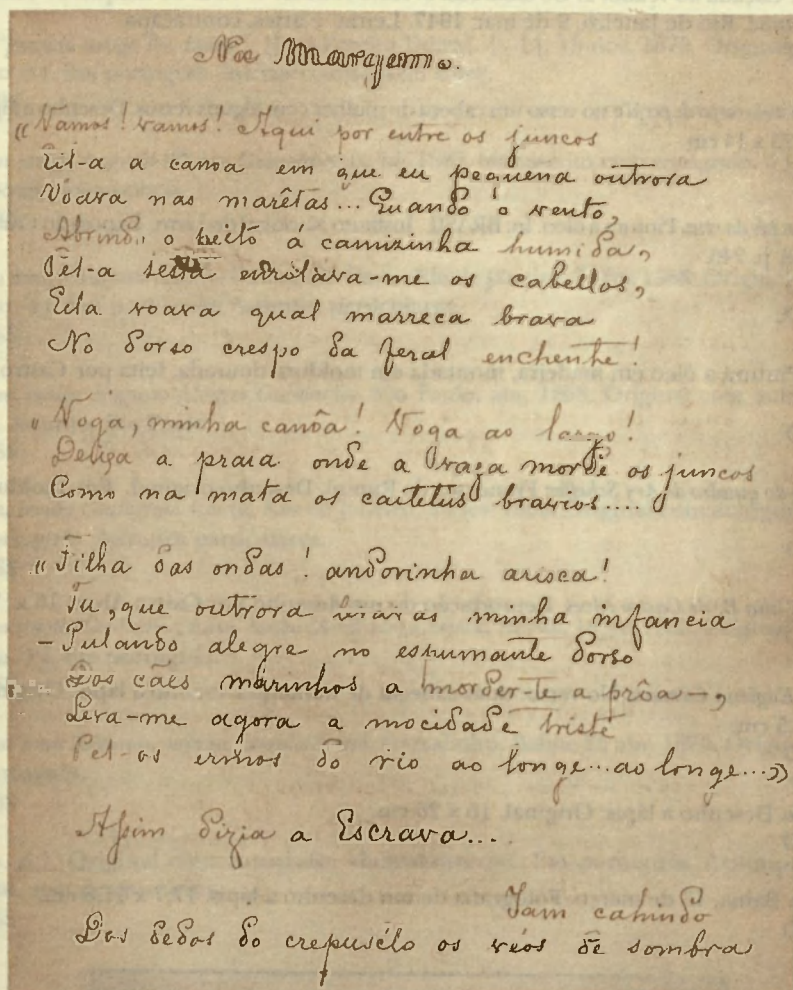 Na Margem.
«Vamos! vamos! Aqui por entre os juncos
Eil-a a canoa em que eu pequena outrora
Voava nas marêtas... Quando o vento,
Abrindo o peito á camizinha humida,
Pel-a testa enrolava-me os cabellos,
Ella voava qual marreca brava
No dorso crespo da feral enchente!
«Voga, minha canôa! Voga ao largo!
Deixa a praia onde a vaga morde os juncos
Como na mata os caitetús bravios....
«Filha das ondas! andorinha arisca!
Tu, que outrora minha infancia
– Pulando alegre no espumante dorso
Dos cães marinhos a morder-te a prôa –,
Leva-me agora a mocidade triste
Pel-os ermos do rio ao longe... ao longe...»
Assim dizia a Escrava...
Iam cahindo
Dos dedos do crepusclo os véos de sombra